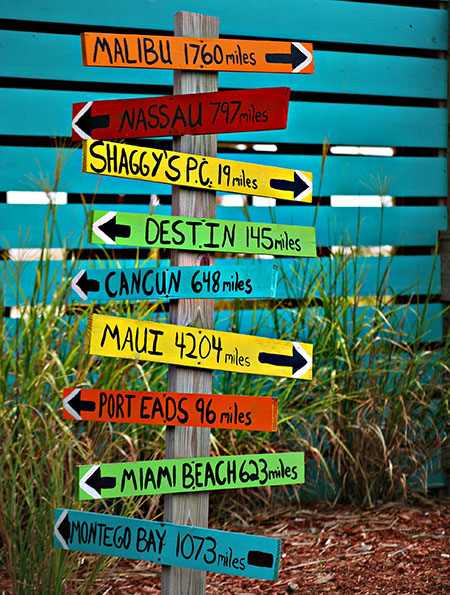 MALIBU 1760 miles
NASSAU 797 miles
SHAGGY'S P.C. 19 miles
DESTIN 145 miles
CANCUN 648 miles
MAUI 4204 miles
PORT EADS 96 miles
MIAMI BEACH 623 miles
MONTEGO BAY 1073 miles